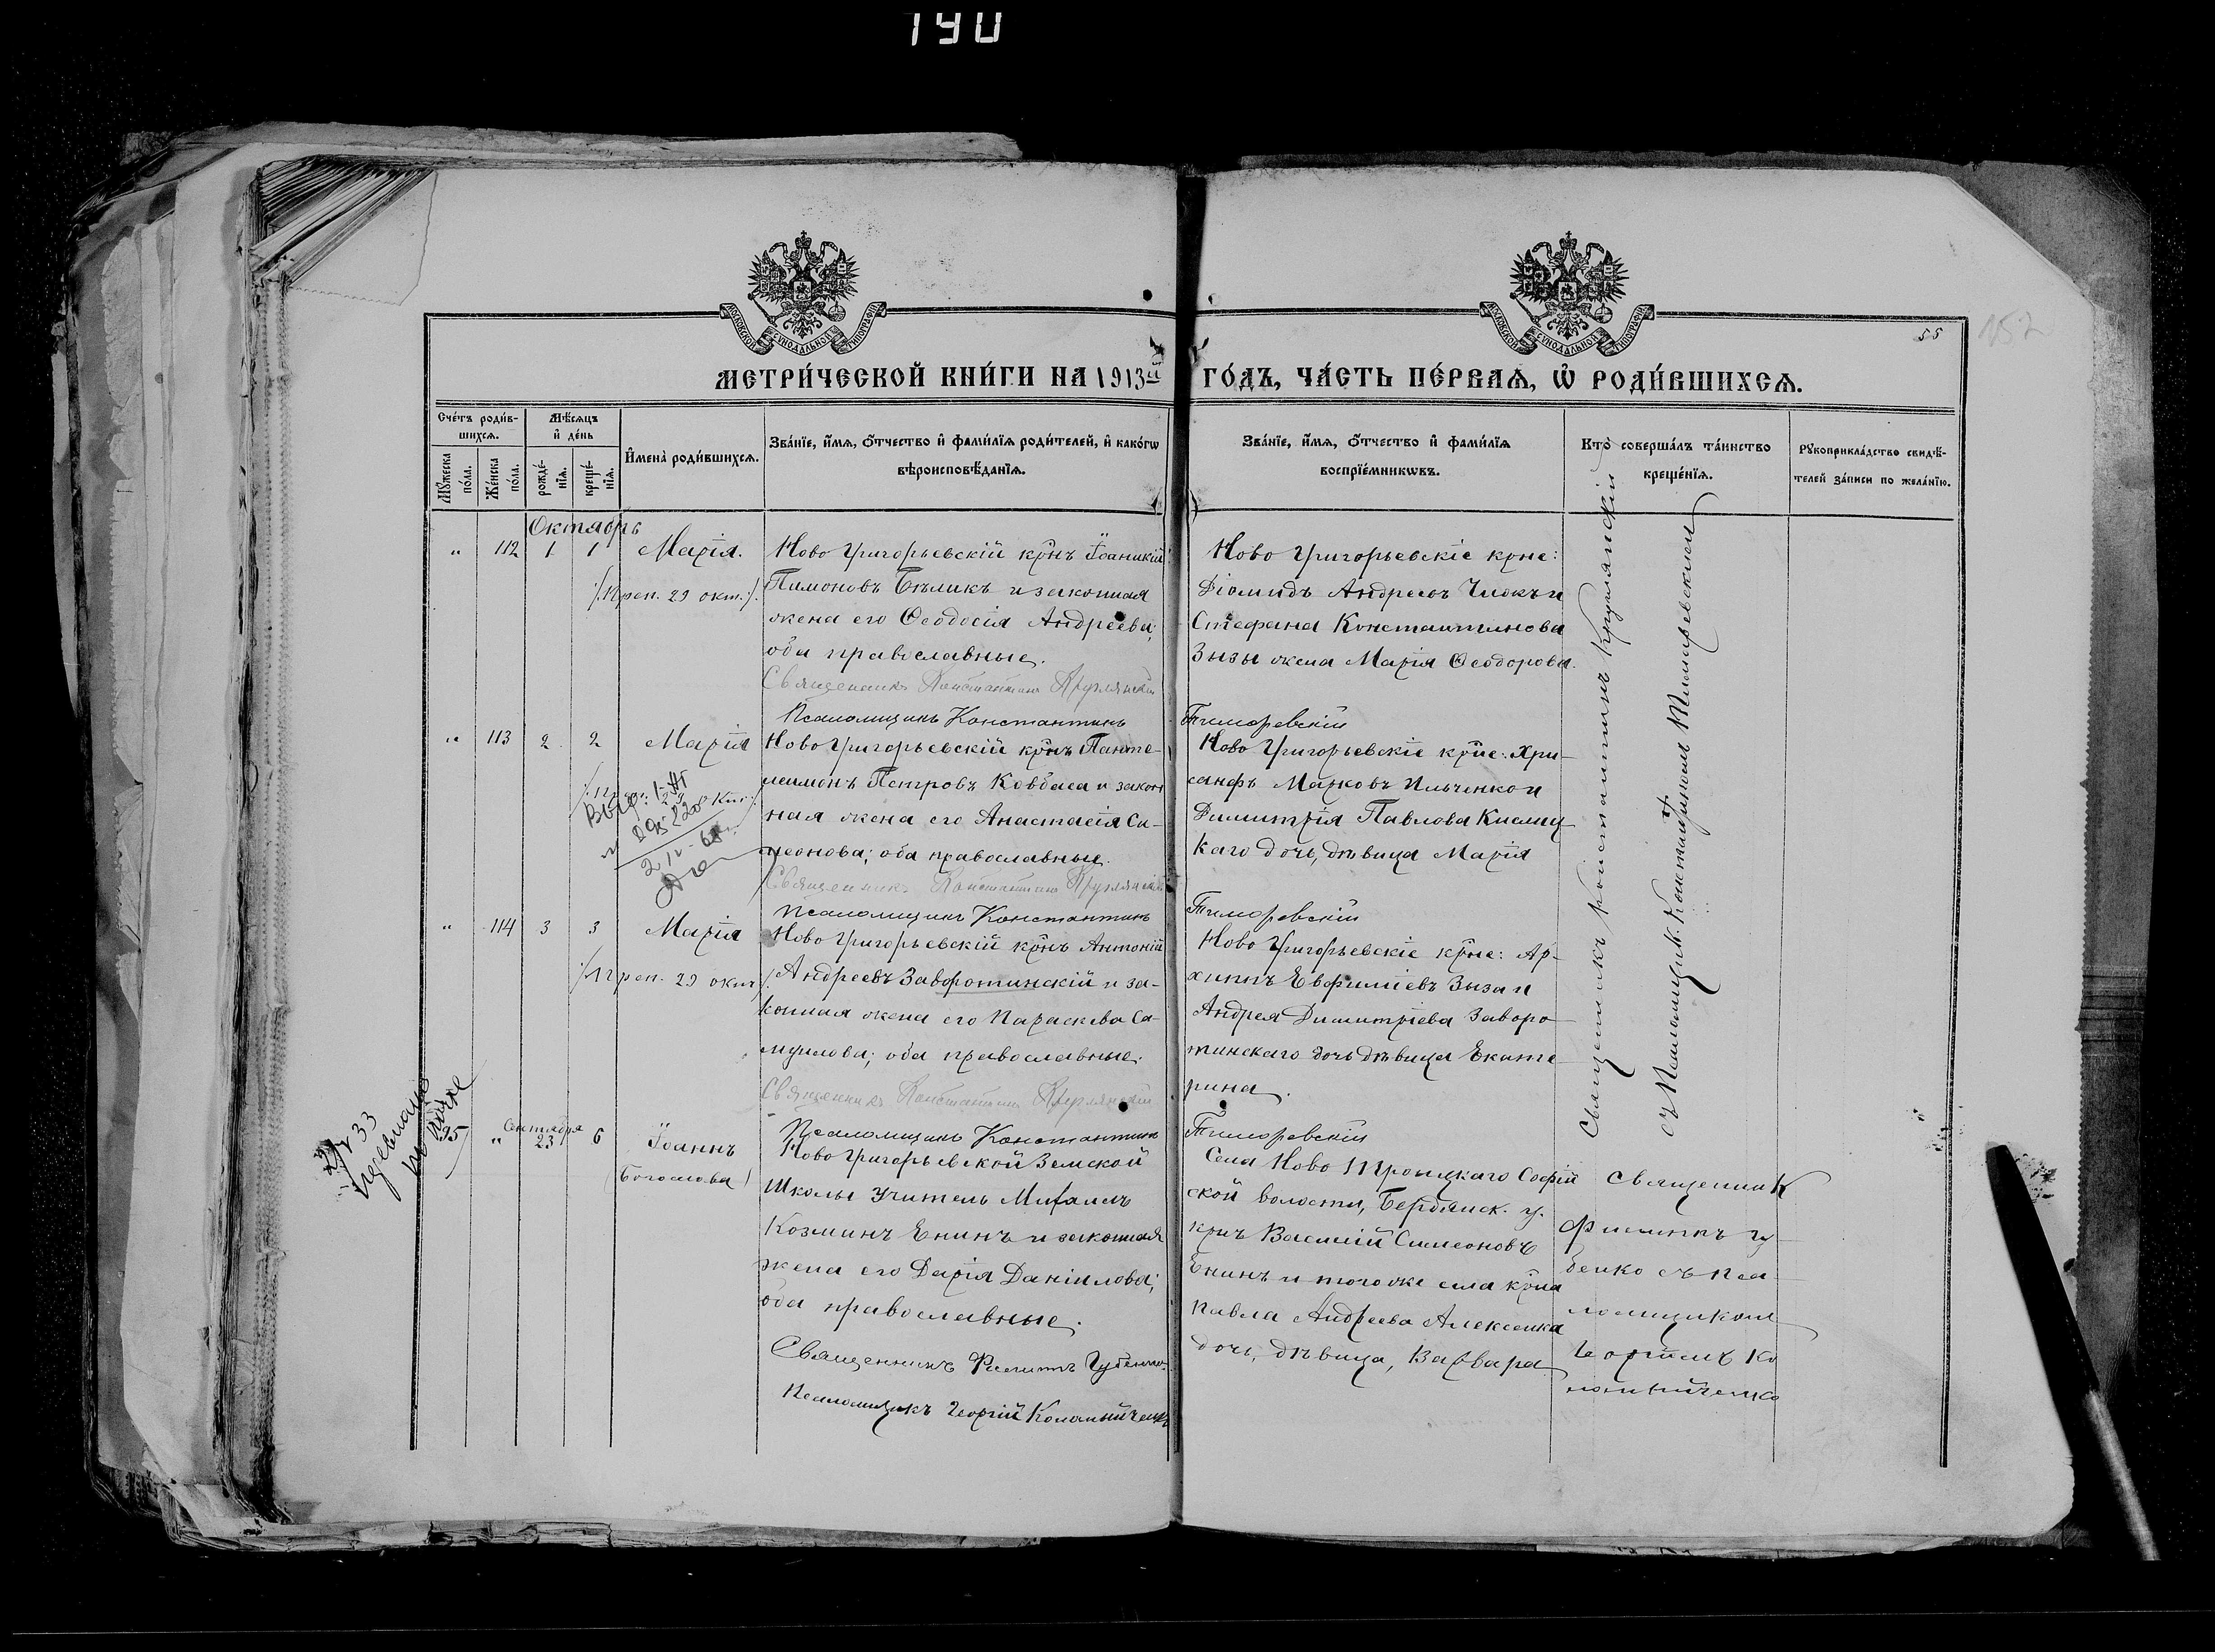 190
МОСКОВСКОЙ СѴНОДАЛЬНОЙ ТИПОГРАФІИ
МОСКОВСКОЙ СѴНОДАЛЬНОЙ ТИПОГРАФІИ
55
157
МЕТРИ́ЧЕСКОЙ КНИ́ГИ НА 1913й ГО́ДЪ, ЧА́СТЬ ПЕ́РВАѦ, Ѡ РОДИ́ВШИХСѦ.
Сче́тъ роди́в-
шихсѧ.
Мꙋ́жеска по́ла.
Же́нска по́ла.
Мѣ́сѧцъ и де́нь
рожде́-
нїѧ.
креще́-
нїѧ.
И҆мена̀ роди́вшихсѧ.
Зва́нїе, и҆́мѧ, ѻ҆́тчество и҆ фами́лїѧ роди́телей, и҆ како́гѡ
вѣроисповѣ́данїѧ.
Зва́нїе, и҆́мѧ, ѻ҆́тчество и҆ фами́лїѧ
воспрїе́мникѡвъ.
Кто̀ соверша́лъ та́инство
креще́нїѧ.
Рꙋкоприкла́дство свидѣ́-
телей за́писи по жела́нїю.
Октябрь
" 112 1 1 Марія.
/:Преп. 29 окт.:/
Ново Григорьевскій крнъ Іоаникій
Пимоновъ Бѣликъ и законная
жена его Ѳеодосія Андреева;
оба православные.
Священникъ Константинъ Крумянскій
Псаломщикъ Константинъ Тиморевскій
Ново Григорьевскіе крне:
Діомидъ Андреевъ Чиокъ и
Стефана Константинова
Зызы жена Марія Ѳеодорова.
" 113 2 2 Марія
Ново Григорьевскій крнъ Панте-
леимонъ Петровъ Ковбаса и закон
ная жена его Анастасія Си-
меонова; оба православные.
Священникъ Константинъ Крумянскій
Псаломщикъ Константинъ Тиморевскій
Ново Григорьевскіе крне: Хри-
санфъ Марковъ Ильченко и
Димитрія Павлова Кислиц
каго дочь, дѣвица Марія
" 114 3 3 Марія
/:Преп. 29 окт:/
Ново Григорьевскій крнъ Антоній
Андреевъ Заворотинскій и за-
конная жена его Параскева Са-
муилова; оба православные.
Священникъ Константинъ Крумянскій
Псаломщикъ Константинъ Тиморевскій
Ново Григорьевскіе крне: Ар-
хиппъ Евфиміевъ Зыза и
Андрея Димитріева Заворо
тинскаго дочь дѣвица Екате
рина.
Священникъ Константинъ Крумянскій
съ Псаломщик. Константиномъ Тиморевскимъ
95 " Сентября 23 6 Іоаннъ
(Богослова)
Ново Григорьевской Земской
Школы Учитель Михаилъ
Козминъ Енинъ и законная
жена его Дарія Даніилова;
оба православные.
Священникъ Филиппъ Губенко.
Псаломщикъ Георгій Коломыйченко
Села Ново Троицкаго Софій
ской волости, Бердянск. у.
крнъ Василій Симеоновъ
Енинъ и того же села крна
Павла Андреева Алексенка
дочь, дѣвица, Варвара
Священник
Филиппъ Гу
бенко съ Пса
ломщикомъ
Георгіемъ Ко
ломыйченко